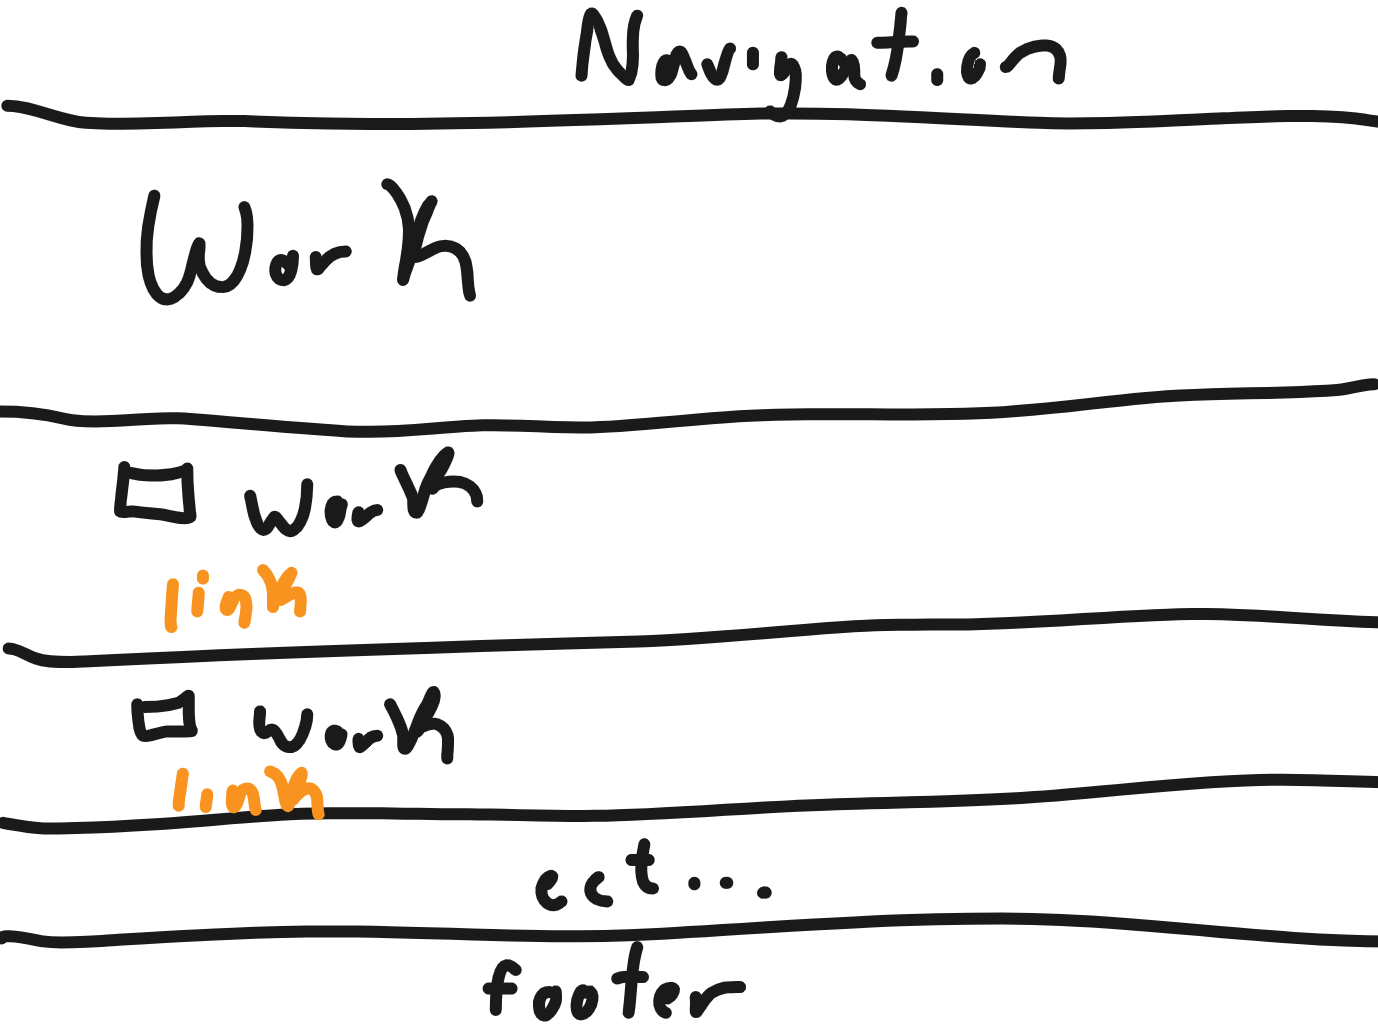 Navigation
Work
work
link
work
link
ect...
footer